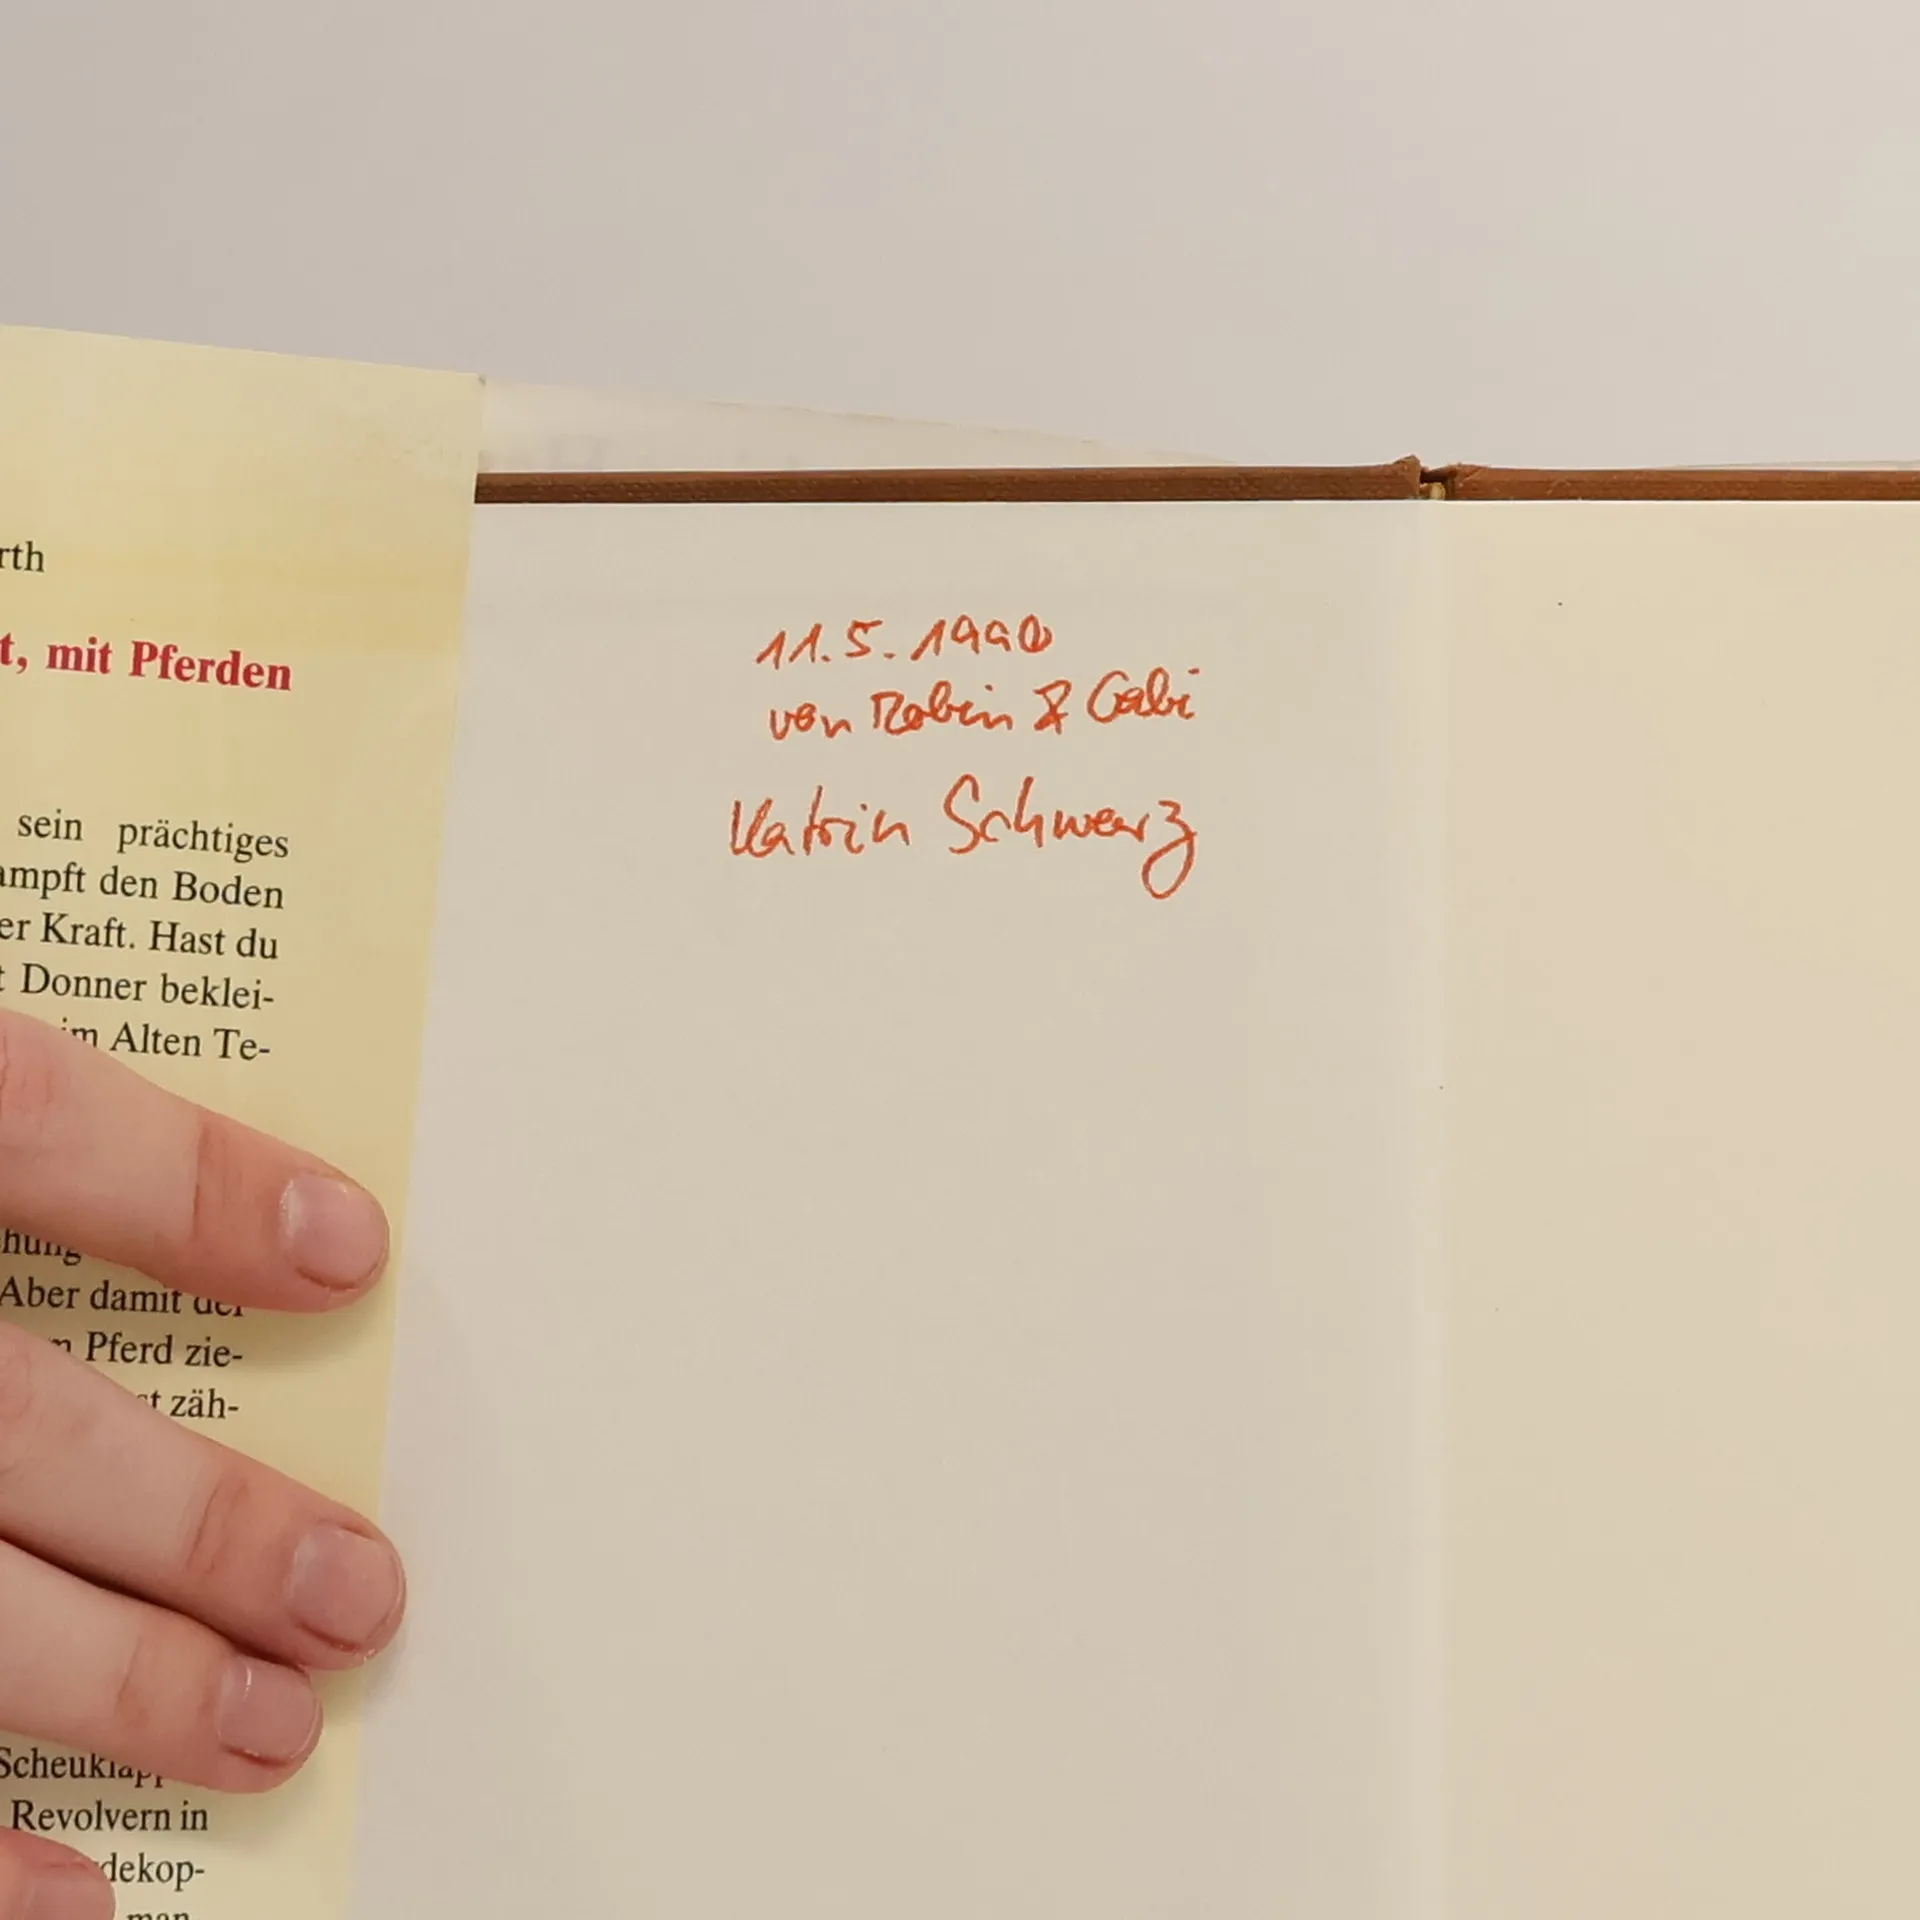 rth
t, mit Pferden
sein prächtiges
ampft den Boden
er Kraft. Hast du
t Donner beklei-
im Alten Te-
hung
Aber damit der
Pferd zie-
st zäh-
Revolvern in
dekop-
man
11.5.1990
von Robin & Gabi
Katrin Schwarz